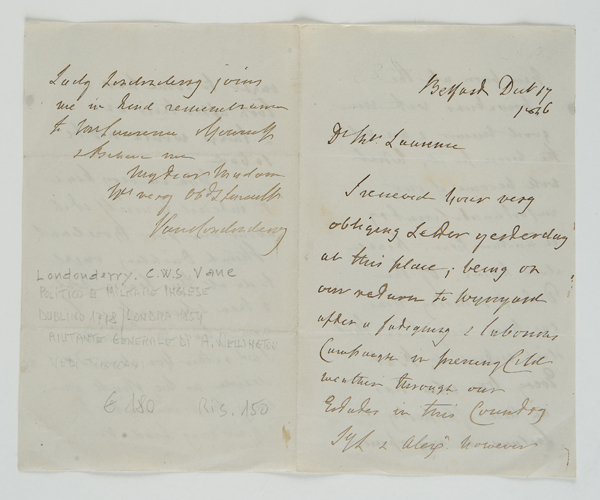 Lady Londonderry joins
me in kind remembrances
to Mr Lawrence & yourself
& Believe me
My dear Madam
Yrs very obdt Servt
Vane Londonderry
Londonderry. C.W.S. Vane
POLITICO E MILITARE INGLESE
DUBLINO 1778/LONDRA 1854
AIUTANTE GENERALE DI A. WELLINGTON
£ 180 Ris. 150
Belfast Decb 17
1846
Dr Mrs. Lawrence
I received your very
obliging Letter yesterday
at this place; being on
our return to Wynyard
after a fatiguing & laborious
Campaign in pressing Cold
weather through our
Estates in this Country
& Alexr. however